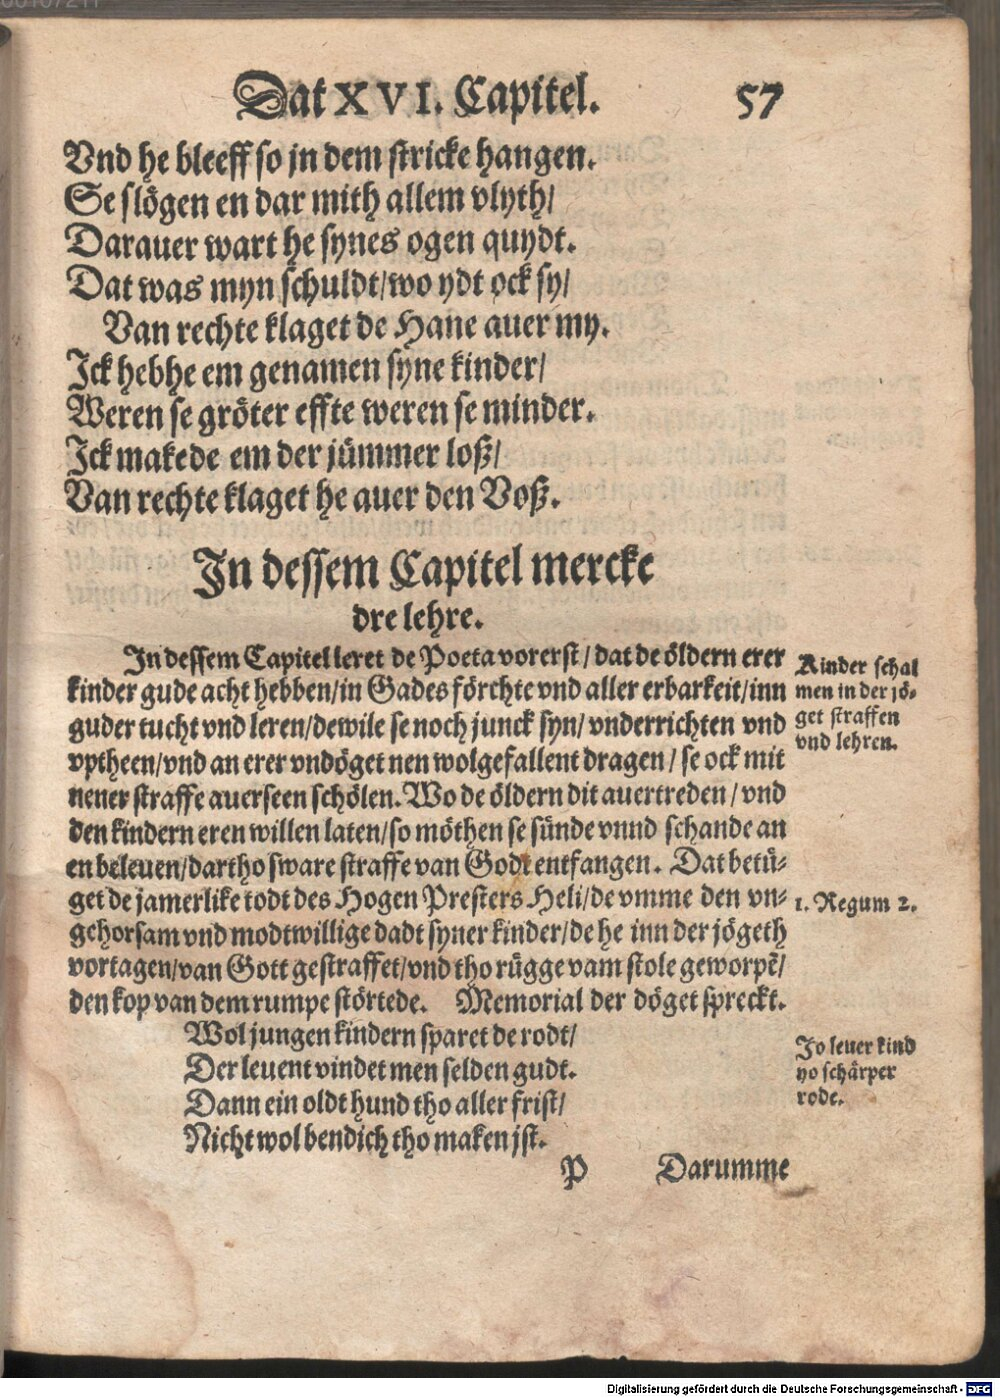 Dat XVI. Capitel. 57
Vnd he bleeff so jn dem stricke hangen.
Se slögen en dar mith allem vlyth/
Darauer wart he synes ogen quydt.
Dat was myn schuldt/wo ydt ock sy/
Van rechte klaget de Hane auer my.
Jck hebhe em genamen syne kinder/
Weren se gröter effte weren se minder.
Jck makede em der jümmer loß/
Van rechte klaget he auer den Voß.
Jn dessem Capitel mercke
dre lehre.
Jn dessem Capitel leret de Poeta vorerst/dat de öldern erer
kinder gude acht hebben/in Gades förchte vnd aller erbarkeit/inn
guder tucht vnd leren/dewile se noch junck syn/vnderrichten vnd
vptheen/vnd an erer vndöget nen wolgefallent dragen/se ock mit
nener straffe auerseen schölen. Wo de öldern dit auertreden/vnd
den kindern eren willen laten/so möthen se sünde vnnd schande an
en beleuen/dartho sware straffe van Godt entfangen. Dat betü-
get de jamerlike todt des Hogen Presters Heli/de vmme den vn-
gehorsam vnd modtwillige dadt syner kinder/de he inn der jögeth
vortagen/van Gott gestraffet/vnd tho rügge vam stole geworpē/
den kop van dem rumpe störtede. Memorial der döget spreckt.
Wol jungen kindern sparet de rodt/
Der leuent vindet men selden gudt.
Dann ein oldt hund tho aller frist/
Nicht wol bendich tho maken jst.
P Darumme
Kinder schal
men in der jö-
get straffen
vnd lehren.
1. Regum 2.
Jo leuer kind
yo schärper
rode.
Digitalisierung gefördert durch die Deutsche Forschungsgemeinschaft - DFG